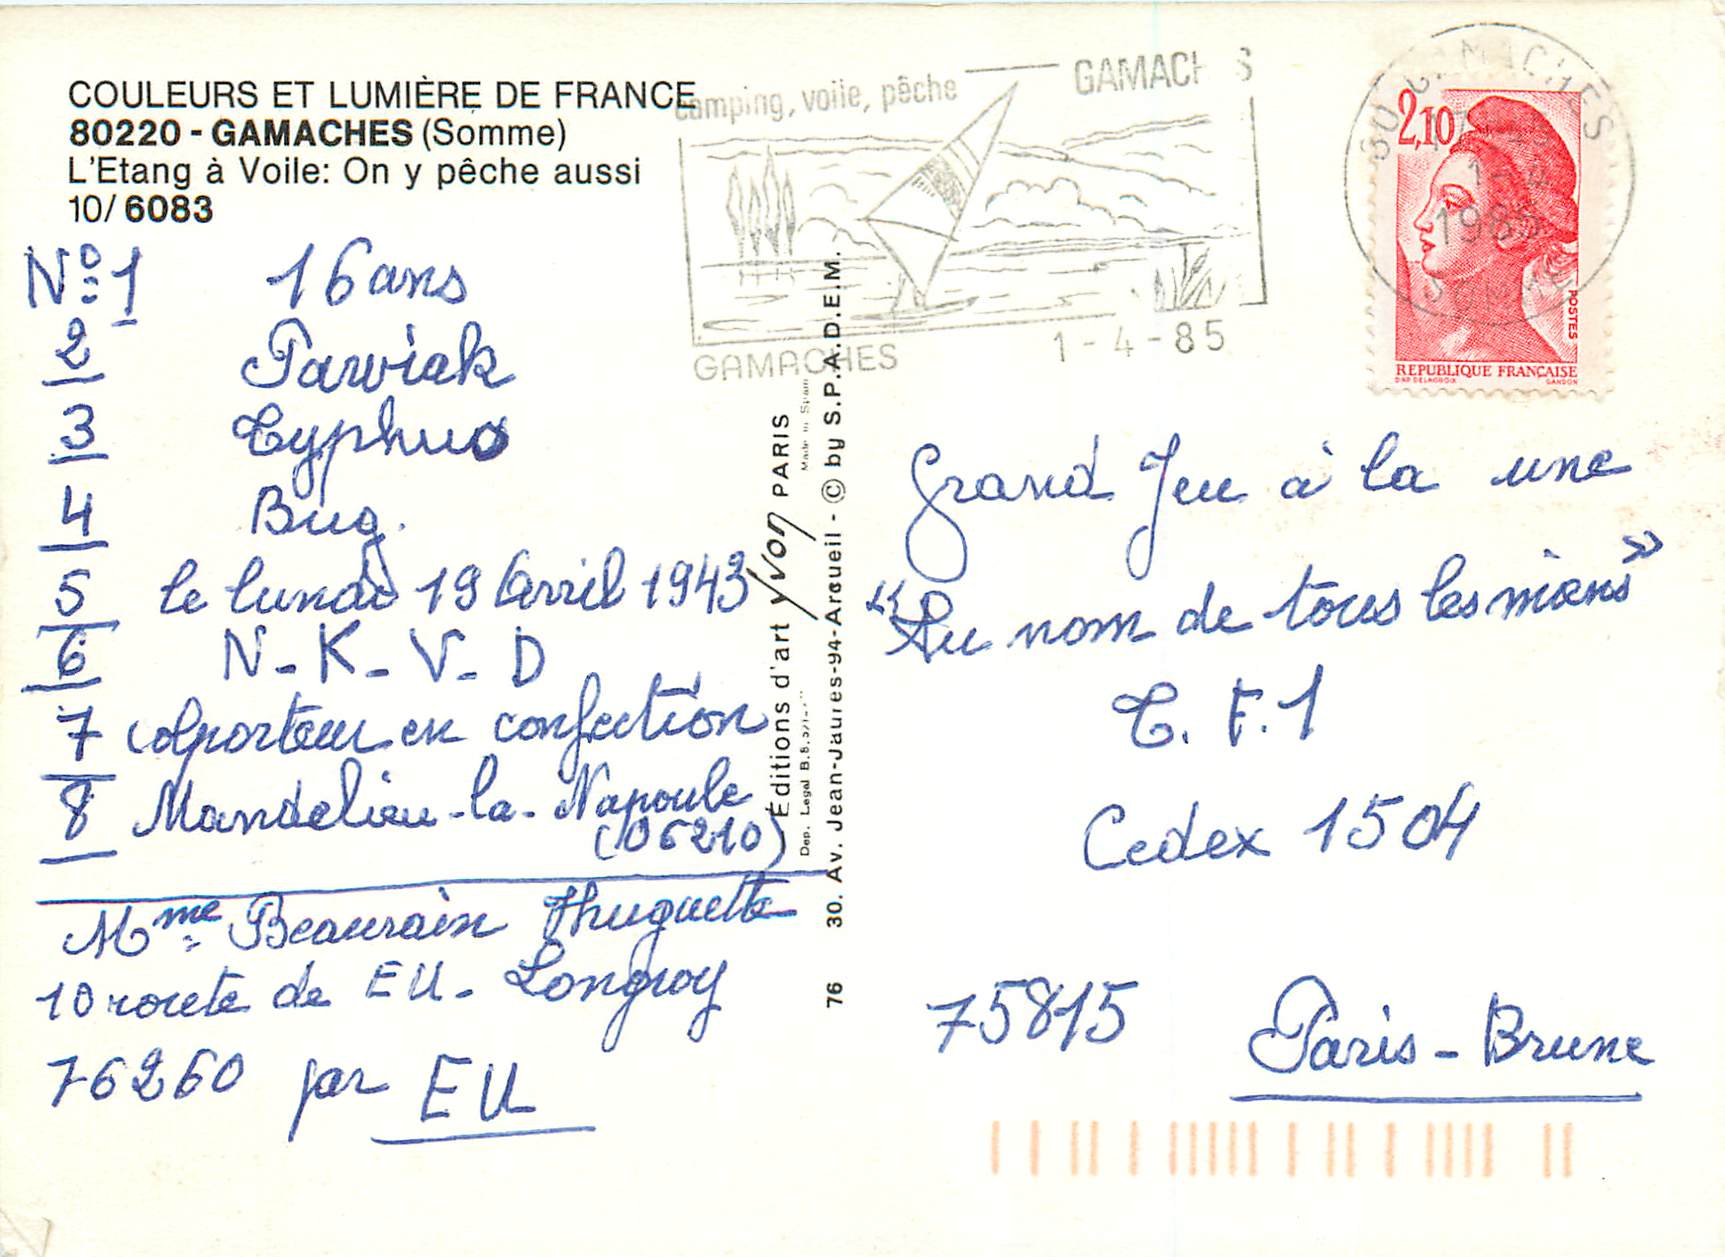 COULEURS ET LUMIÈRE DE FRANCE
80220 - GAMACHES (Somme)
L'Etang à Voile: On y pêche aussi
10/6083
camping, voile, pêche
GAMACHES
GAMACHES
1-4-85
80 GAMACHES
1985
SOMME
2,10
POSTES
REPUBLIQUE FRANÇAISE
D'AP. DELACROIX
GANDON
No: 1 16 ans
2 Pawiak
3 Typhus
4 Bug.
5 le lundi 19 Avril 1943
6 N-K-V-D
7 colporteur en confection
8 Mandelieu-la-Napoule
(06210)
Mme Beaurain Huguette
10 route de EU - Longroy
76260 par EU
Éditions d'art yvon PARIS
Made in Spain
Dep. Legal B.
76 30. Av. Jean-Jaures-94-Arcueil - © by S.P.A.D.E.M.
Grand Jeu à la une
"Au nom de tous les miens"
T.F.1
Cedex 1504
75815 Paris-Brune